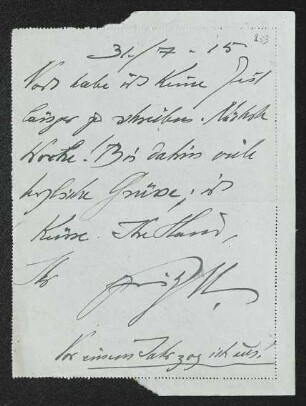 31./7.15
Noch habe ich keine Zeit
länger zu schreiben. Nächste
Woche! Bis dahin viele
herzliche Grüße, ich
küsse Ihre Hand,
Ihr Fritz
Vor einem Jahr zog ich aus!